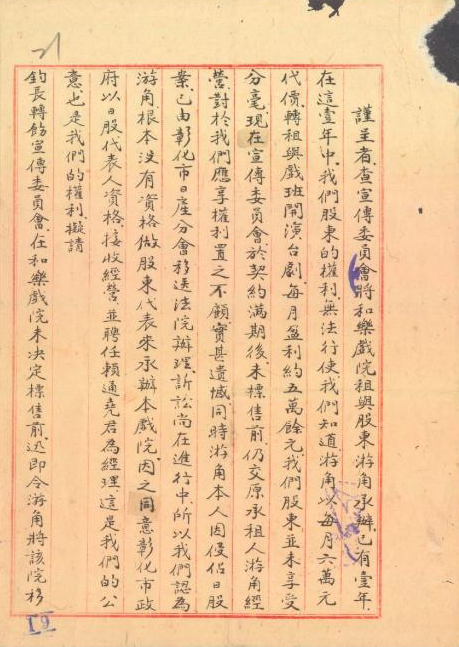 謹呈者查宣傳委員會將和樂戲院租與股東游角承辦、已有壹年、
在這壹年中、我們股東的權利、無法行使、我們知道、游角以每月六萬元
代價、轉租與戲班開演台劇、每月盈利約五萬餘元、我們股東並未享受
分毫、現在宣傳委員會、於契約滿期後、未標售前、仍交原承租人游角經
營、對於我們應享權利置之不顧、實甚遺憾、同時游角本人因侵佔日股
業、已由彰化市日產分會移送法院辦理訴訟、尚在進行中、所以我們認為
游角、根本沒有資格做股東代表來承辦本戲院、因之同意彰化市政
府以日股代表人資格、接收經營、並聘任賴通堯君為經理、這是我們的公
意也是我們的權利、擬請
鈞長轉飭宣傳委員會、在和樂戲院未決定標售前、迅即令游角將該院移
19